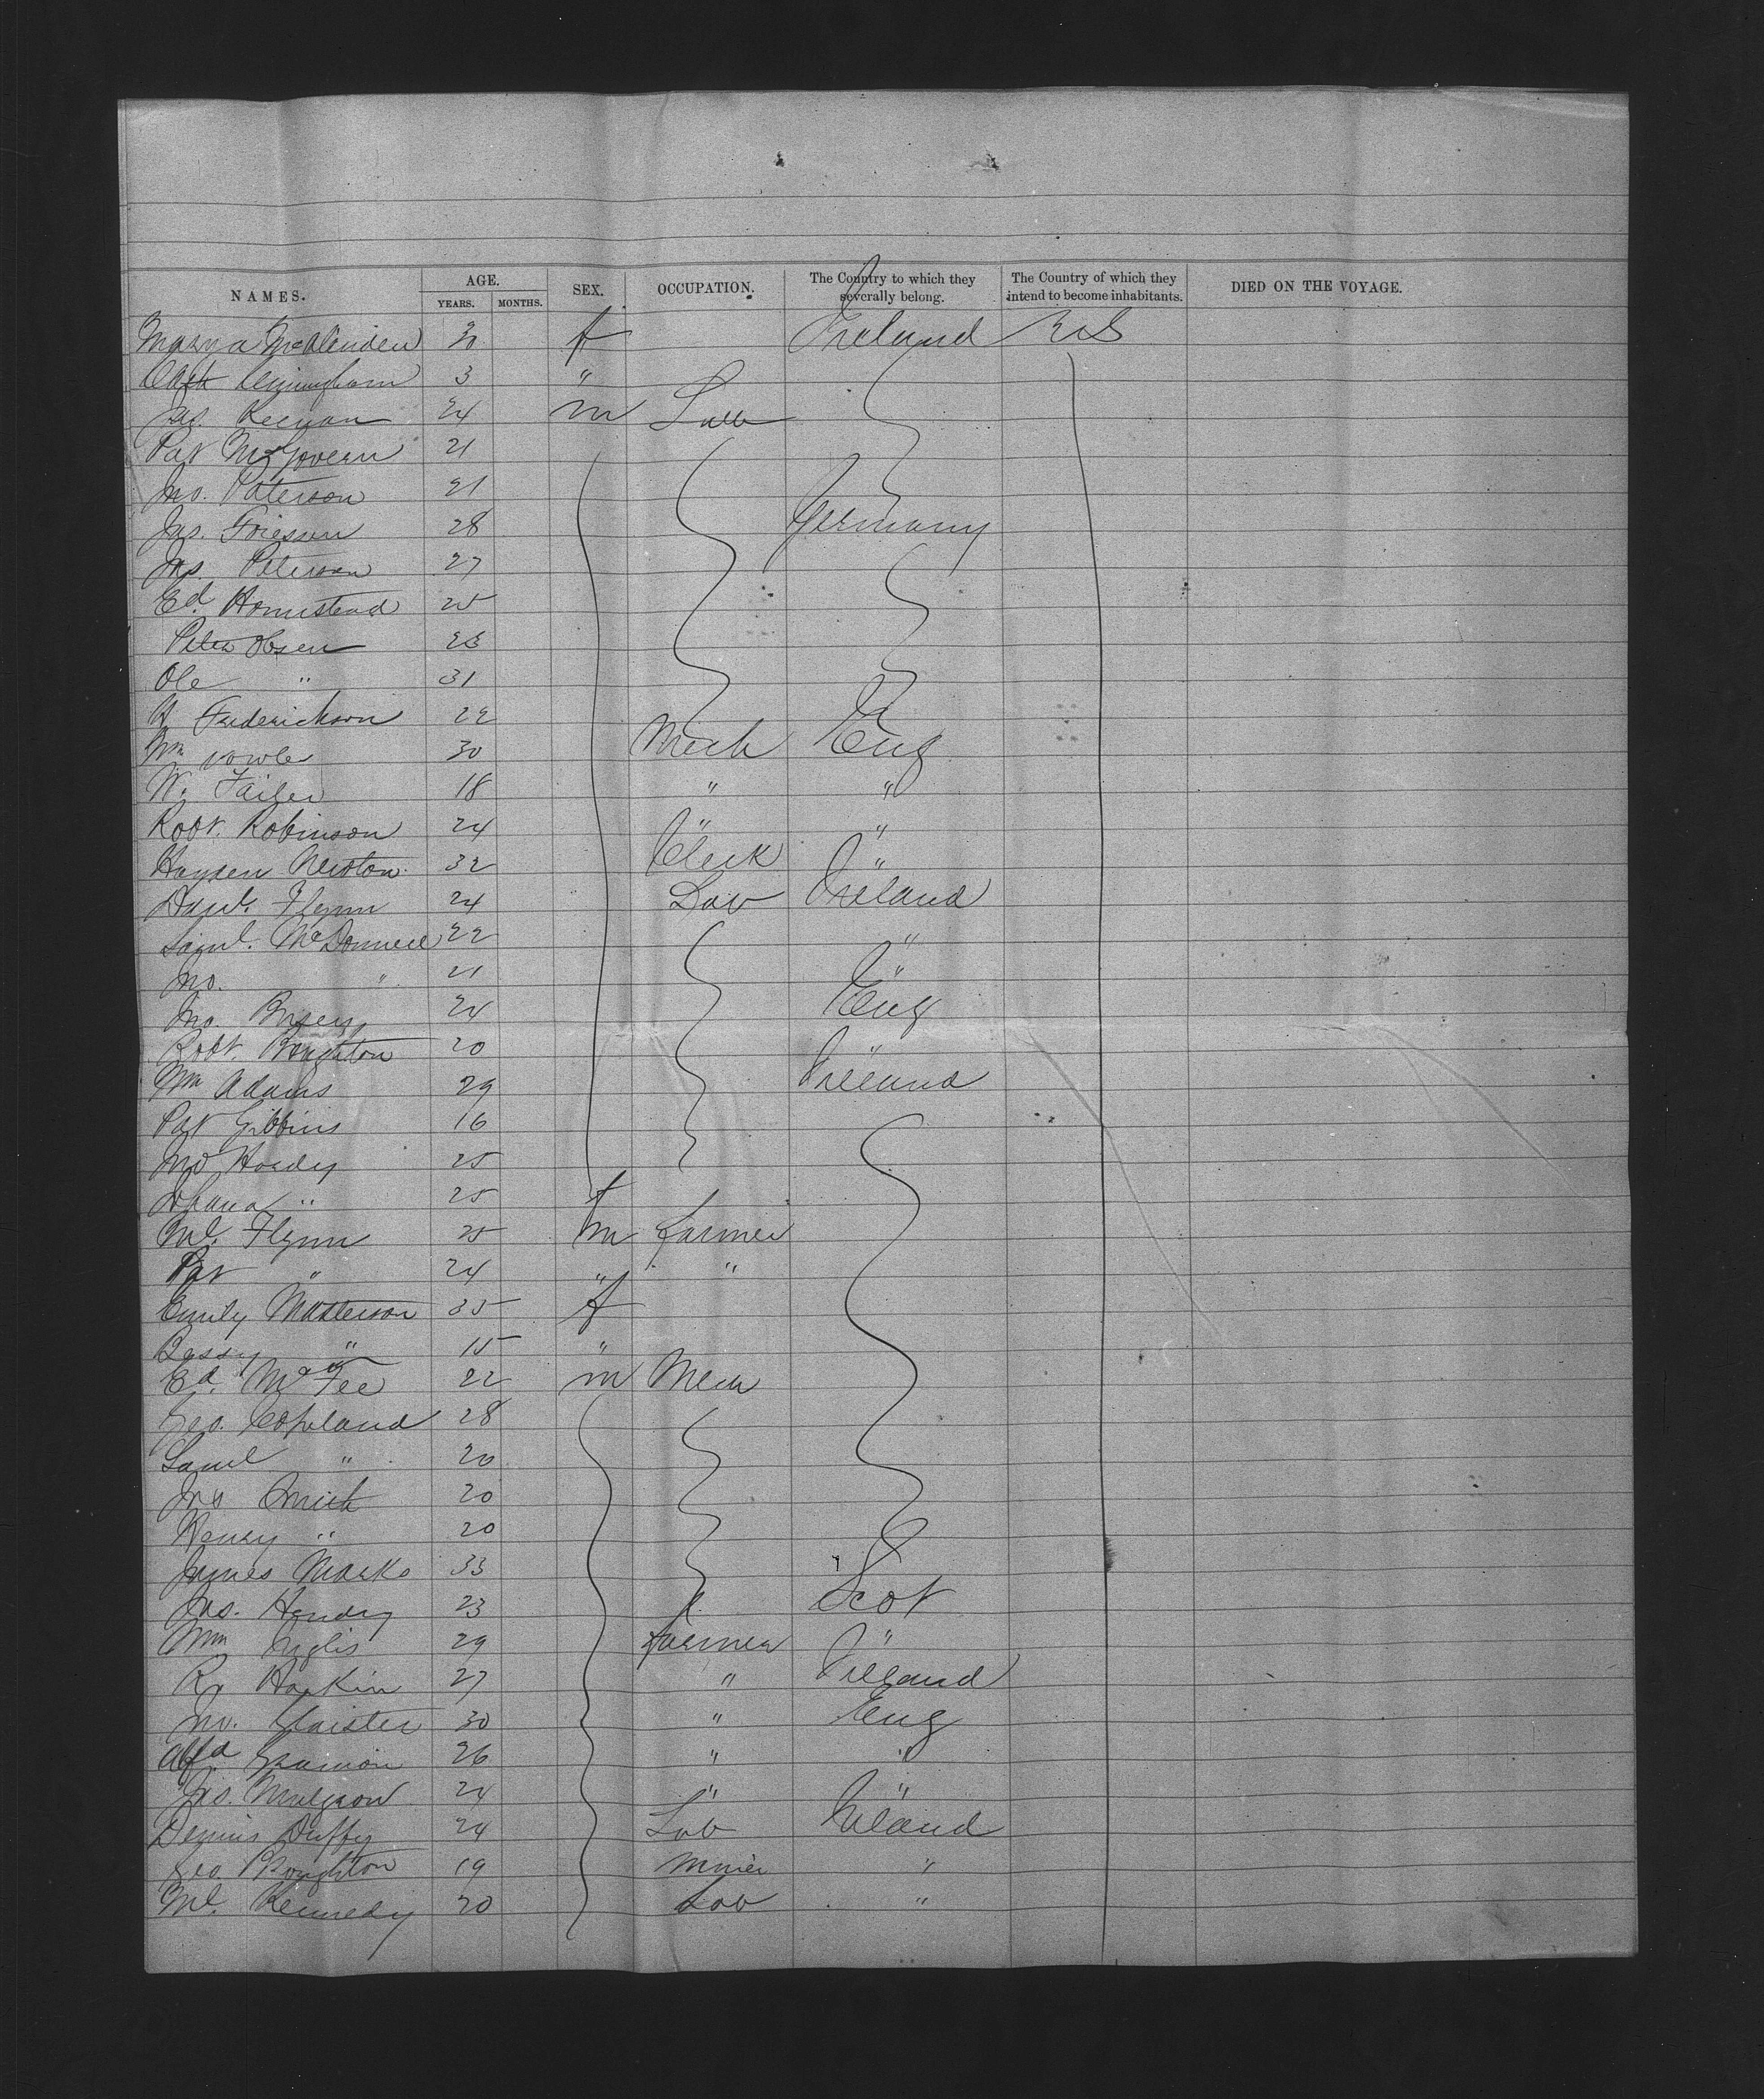 NAMES. AGE. YEARS. MONTHS. SEX. OCCUPATION. The Country to which they severally belong. The Country of which they intend to become inhabitants. DIED ON THE VOYAGE.
Mary a 30 f Ireland US
Cath Cunningham 3 "
Jas. Keenan 24 m Lab
Pat McGovern 21
Jno. Paterson 21
Jas. 28 Germany
Jas. Peterson 27
Ed. Homistead 25
Peter Olsen 23
Ole " 31
A Frederickson 22
Wm Vowle 30 Mech Eng
W. 18 " "
Robt. Robinson 24 " "
Hayden Newton 32 Clerk "
Danl. Flynn 24 Lab Ireland
Saml. McDonnell 22 "
Jno. " 21 "
Jno. 24 Eng
Robt. Boughton 20 "
Wm Adams 29 Ireland
Pat Gibbins 16
Jno Hoady 25
Johana " 25 f
Ml. Flynn 25 m Farmer
Pat " 24 " "
Emily Masterson 35 f
Bessy " 15 "
Ed. McFee 22 m Mech
Geo. Copeland 28
Saml " 20
Jas Smith 20
Henry " 20
James Marks 33
Jas. Hendry 23 Scot
Wm Inglis 29 Farmer "
Ry Harkin 27 " Ireland
Jno. Glaister 30 " Eng
Alfd 26 " "
Jas. 24 " "
Dennis Duffy 24 Lab Ireland
Geo. Boughton 19 Miner "
Ml. Kennedy 20 Lab "